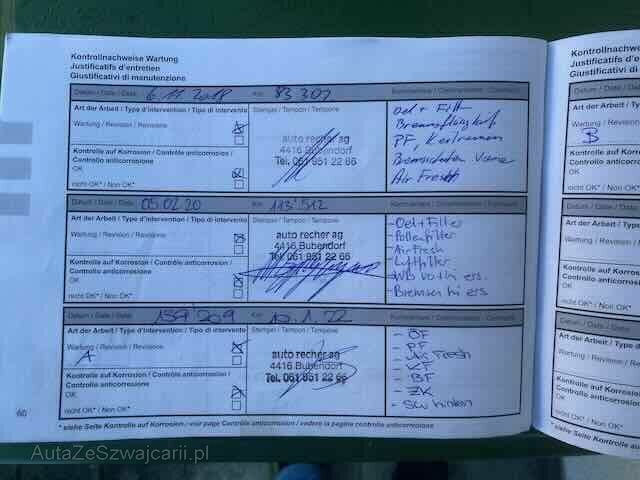 Kontrollnachweise Wartung
Justificatifs d'entretien
Giustificativi di manutenzione
Datum / Date / Data 6.11.2018 Km: 83 307 Kommentare / Commentaires / Commenti
Art der Arbeit / Type d'intervention / Tipo di intervento
Stempel / Tampon / Tampone
Wartung / Revision / Revisione
Kontrolle auf Korrosion / Contrôle anticorrosion /
Controllo anticorrosione
OK
nicht OK* / Non OK*
auto recher ag
4416 Bubendorf
Tel. 061 951 22 66
Oel + Filter
Bremsflüssigkeit
PF, Keilriemen
Bremsscheiben Vorne
Air Fresh
Datum / Date / Data 05.02.20 Km: 113'512
Art der Arbeit / Type d'intervention / Tipo di intervento
Stempel / Tampon / Tampone
Wartung / Revision / Revisione
Kontrolle auf Korrosion / Contrôle anticorrosion /
Controllo anticorrosione
OK
nicht OK* / Non OK*
auto recher ag
4416 Bubendorf
Tel. 061 951 22 66
- Oel + Filter
- Pollenfilter
- Air Fresh
- Luftfilter
- Bremsen hi ers
Datum / Date / Data 159'209 Km: 12.1.22
Art der Arbeit / Type d'intervention / Tipo di intervento
Stempel / Tampon / Tampone
Wartung / Revision / Revisione
A
Kontrolle auf Korrosion / Contrôle anticorrosion /
Controllo anticorrosione
OK
nicht OK* / Non OK*
auto recher ag
4416 Bubendorf
Tel. 061 951 22 66
- ÖF
- PF
- Air Fresh
- KF
- BF
- ZK
- SW hinten
60
* siehe Seite Kontrolle auf Korrosion / voir page Contrôle anticorrosion / vedere la pagina controllo anticorrosione
Kontrollnachweise
Justificatifs d'e
Giustificativi di
Datum / Date / Data
Art der Arbeit / Typ
Wartung / Revision /
B
Kontrolle auf Korro
Controllo anticorro
OK
nicht OK* / Non OK*
Datum / Date / Data
Art der Arbeit / Typ
Wartung / Revision /
Kontrolle auf Korro
Controllo anticorro
OK
nicht OK* / Non OK*
Datum / Date / Data
Art der Arbeit /
Wartung / Revision
Kontrolle auf Kor
Controllo anticorr
OK
nicht OK* / Non OK*
* siehe Seite Kontro
AutaZeSzwajcarii.pl